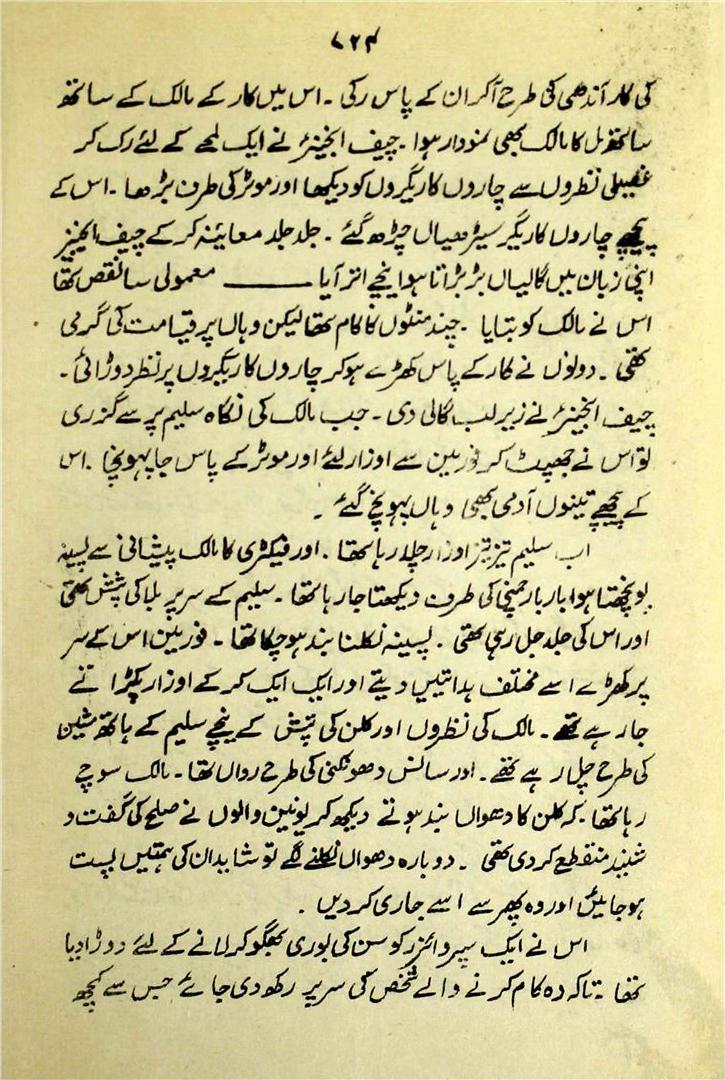 ۷۲۴
کی کار آندھی کی طرح آکر ان کے پاس رکی ۔ اس میں کار کے مالک کے ساتھ
ساتھ مل کا مالک بھی نمودار ہوا ۔ چیف انجینئر نے ایک لمحے کے لئے رک کر
غصیلی نظروں سے چاروں کاریگروں کو دیکھا اور موٹر کی طرف بڑھا ۔ اس کے
پیچھے چاروں کاریگر سیڑھیاں چڑھ گئے ۔ جلد جلد معائینہ کر کے چیف انجینیر
اپنی زبان میں گالیاں بڑبڑاتا ہوا نیچے اتر آیا ــــــ معمولی سا نقص تھا
اس نے مالک کو بتایا ۔ چند منٹوں کا کام تھا لیکن وہاں پر قیامت کی گرمی
تھی ۔ دونوں نے کار کے پاس کھڑے ہو کر چاروں کاریگروں پر نظر دوڑائی ۔
چیف انجینئر نے زیر لب گالی دی ۔ جب مالک کی نگاہ سلیم پر سے گزری
تو اس نے جھپٹ کر فورمین سے اوزار لئے اور موٹر کے پاس جا پہونچا ۔ اس
کے پیچھے تینوں آدمی بھی وہاں پہونچ گئے ۔
اب سلیم تیز تیز اوزار چلا رہا تھا ۔ اور فیکٹری کا مالک پیشانی سے پسینہ
پونچھتا ہوا بار بار چمنی کی طرف دیکھتا جا رہا تھا ۔ سلیم کے سر پر بلا کی تپش تھی
اور اس کی جلد جل رہی تھی ۔ پسینہ نکلنا بند ہو چکا تھا ۔ فورمین اس کے سر
پر کھڑے اسے مختلف ہدائتیں دیتے اور ایک ایک کر کے اوزار پکڑاتے
جا رہے تھے ۔ مالک کی نظروں اور کلن کی تپش کے نیچے سلیم کے ہاتھ مشین
کی طرح چل رہے تھے ۔ اور سانس دھونکنی کی طرح رواں تھا ۔ مالک سوچ
رہا تھا ۔ کہ کلن کا دھواں بند ہوتے دیکھ کر یونین والوں نے صلح کی گفت و
شنید منقطع کر دی تھی ۔ دوبارہ دھواں نکلنے لگے تو شاید ان کی ہمتیں پست
ہو جائیں اور وہ پھر سے اسے جاری کر دیں ۔
اس نے ایک سپروائزر کو سن کی بوری بھگو کر لانے کے لئے دوڑا دیا
تھا ۔ تاکہ وہ کام کرنے والے شخص کی سر پر رکھ دی جائے جس سے کچھ